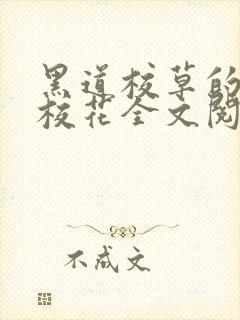 黑道校草的
校花全文阅
不成文